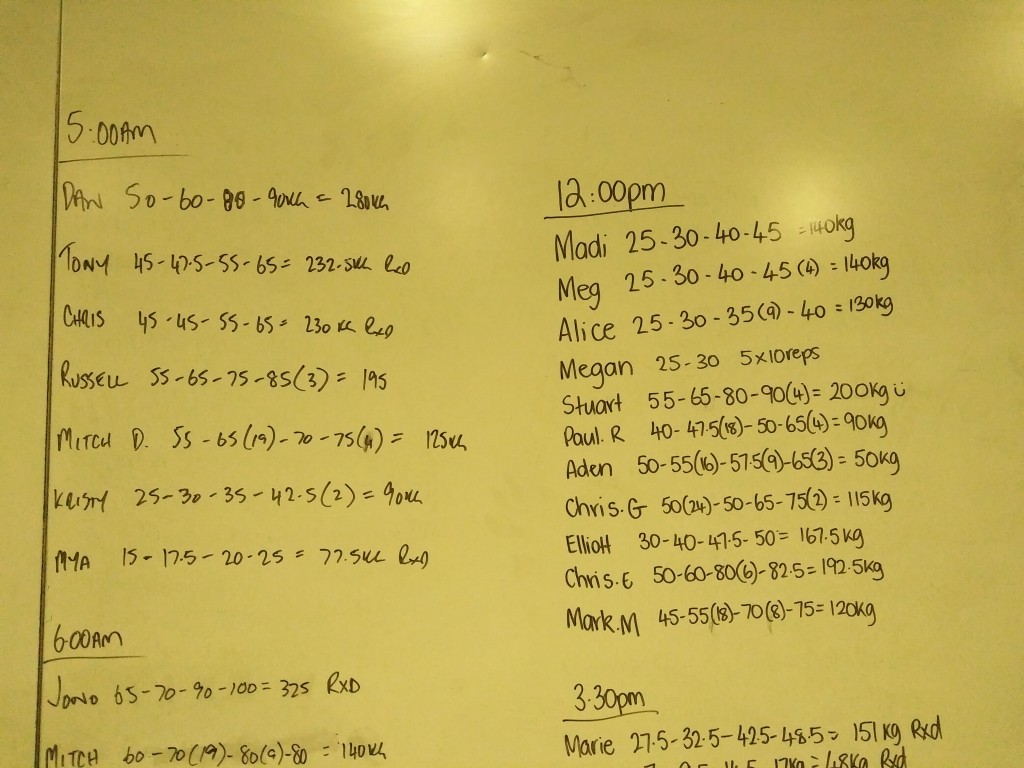 5:00AM
DAN 50-60-80-90KG = 280KG
TONY 45-47.5-55-65= 232.5KG RxD
CHRIS 45-45-55-65= 230 KG RxD
RUSSELL 55-65-75-85(3)= 195
MITCH D. 55-65(19)-70-75(4)= 125KG
KRISTY 25-30-35-42.5(2)= 90KG
MYA 15-17.5-20-25 = 77.5KG RxD
6:00AM
JONO 65-70-90-100= 325 RXD
MITCH 60-70(19)-80(9)-80 = 140KG
12:00pm
Madi 25-30-40-45 =140kg
Meg 25-30-40-45(4) =140kg
Alice 25-30-35(9)-40 =130kg
Megan 25-30 5x10reps
Stuart 55-65-80-90(4)= 200kg ü
Paul.R 40-47.5(18)-50-65(4)=90kg
Aden 50-55(16)-57.5(9)-65(3)= 50kg
Chris.G 50(24)-50-65-75(2)= 115kg
Elliott 30-40-47.5-50= 167.5kg
Chris.E 50-60-80(6)-82.5=192.5kg
Mark.M 45-55(18)-70(8)-75=120kg
3.30pm
Marie 27.5-32.5-42.5-48.5= 151kg Rxd
17kg = 48kg Rxd